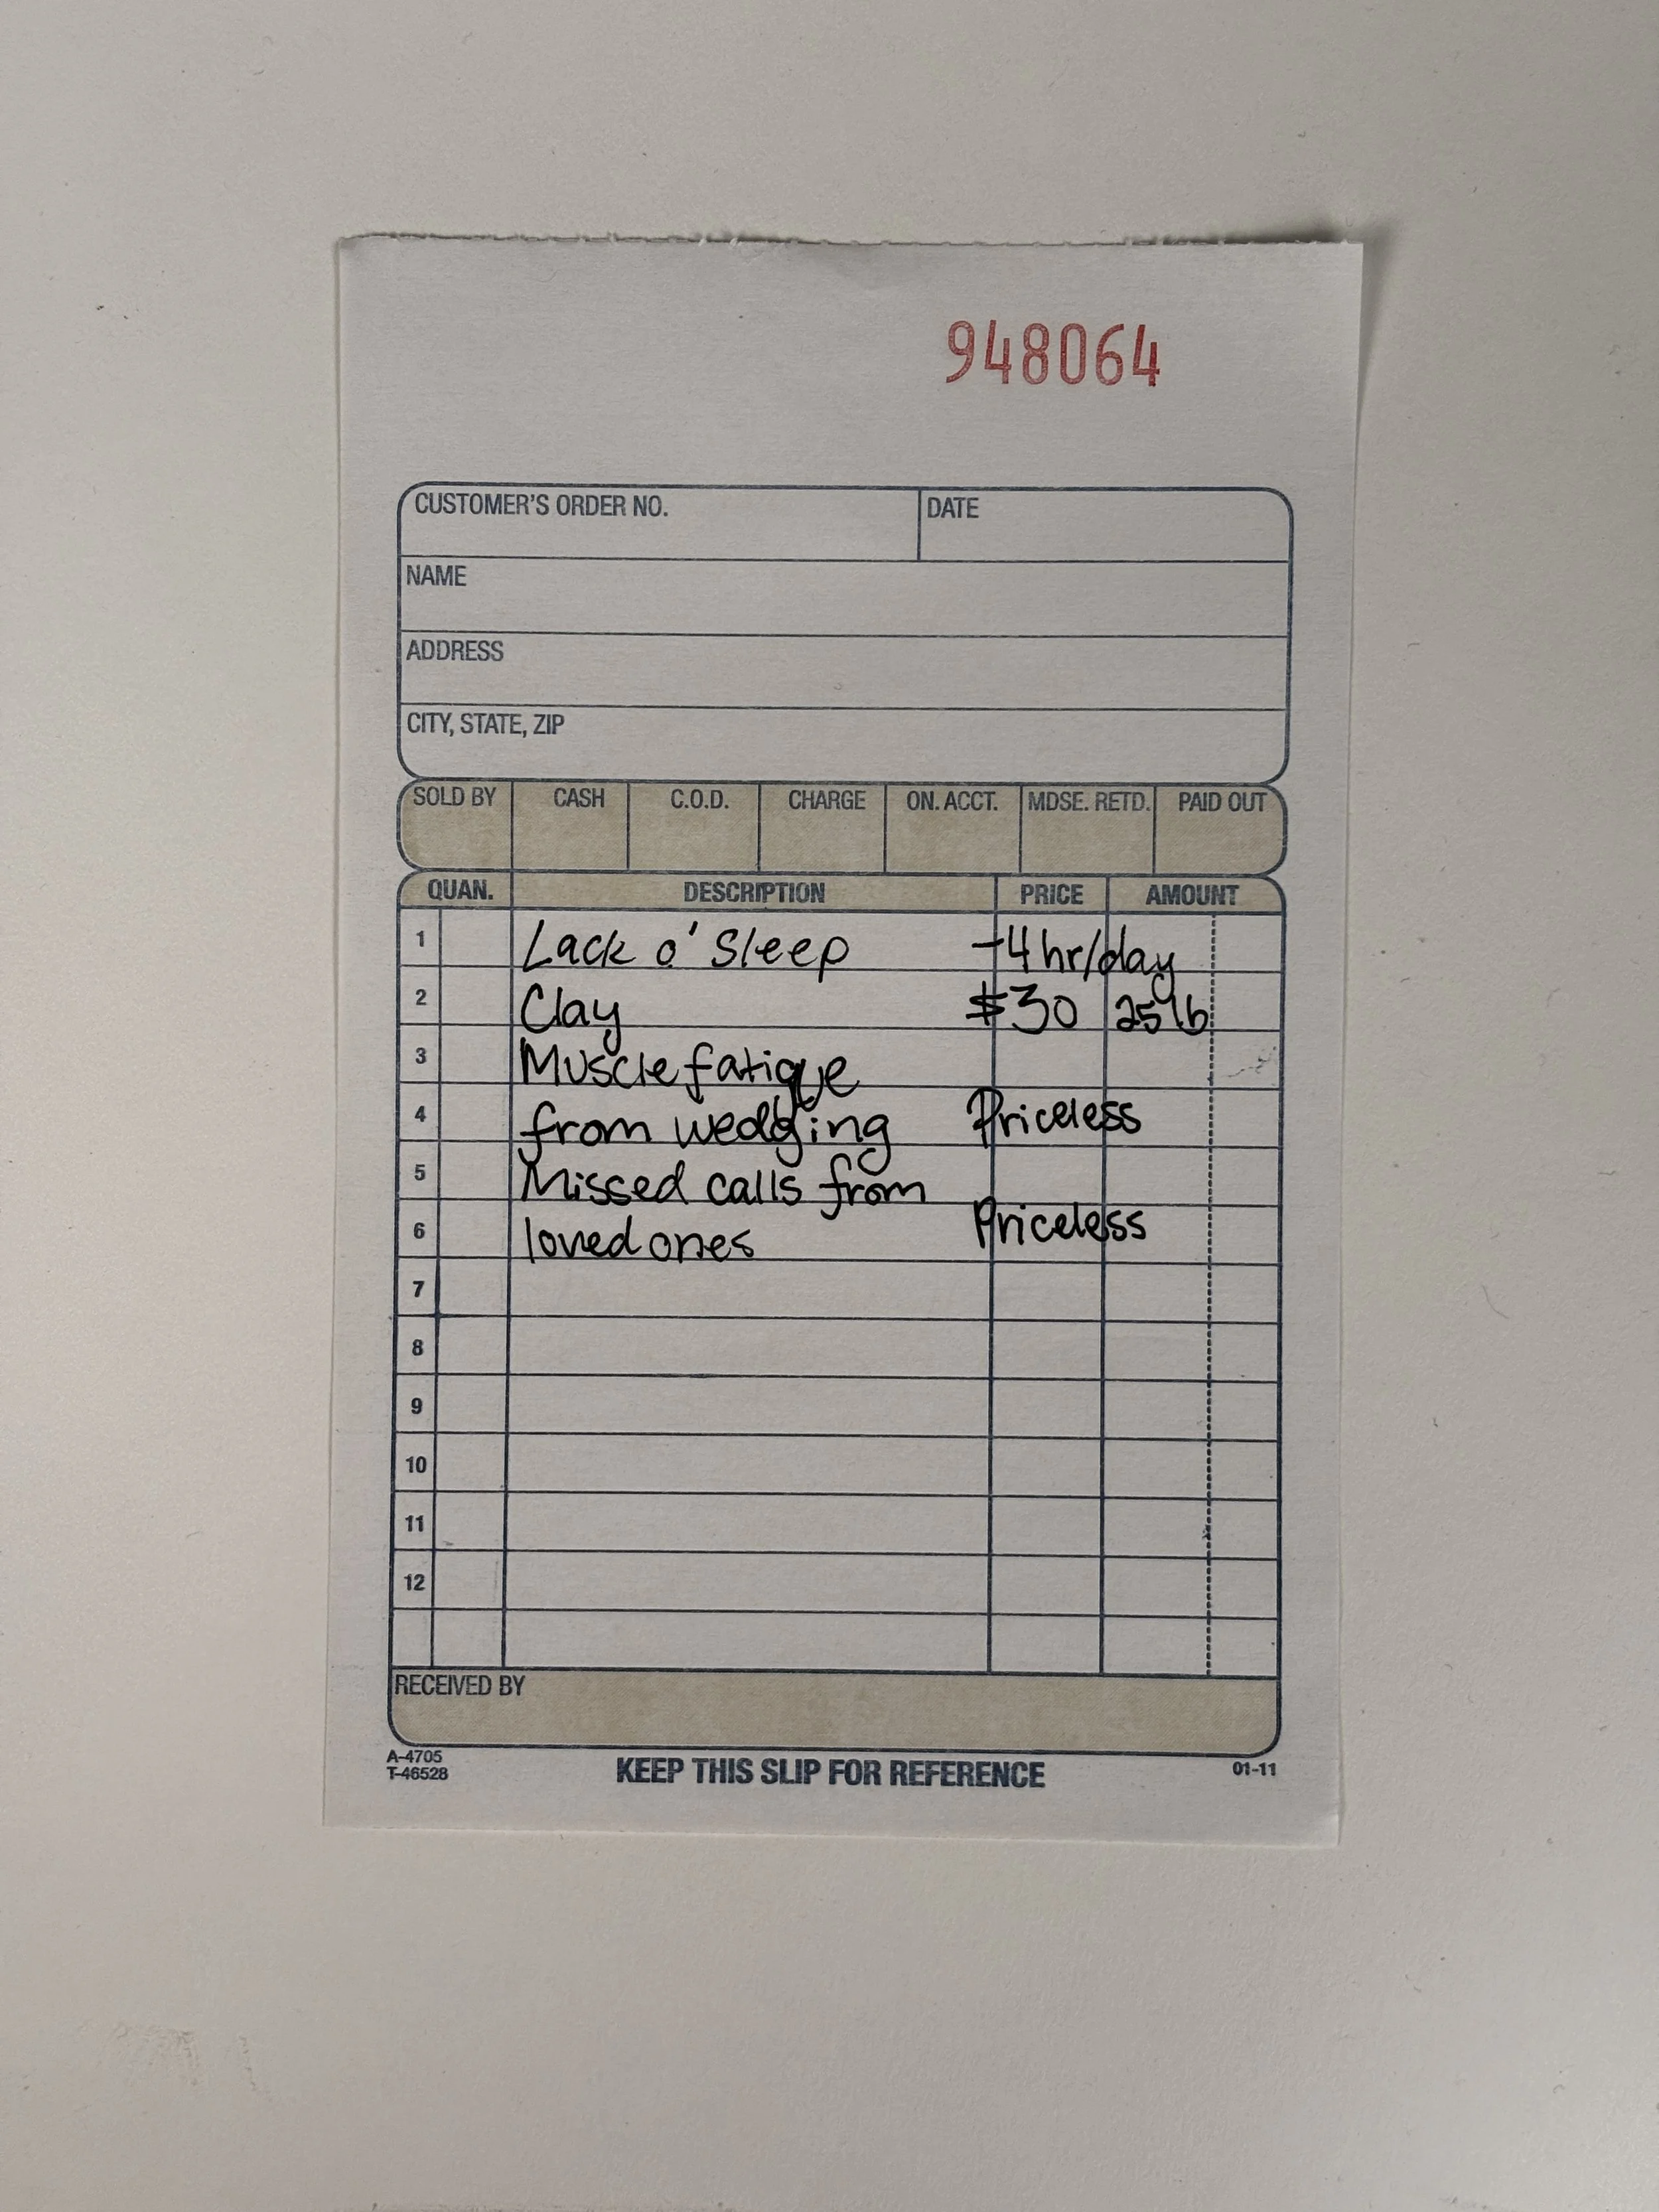 948064
CUSTOMER'S ORDER NO. DATE
NAME
ADDRESS
CITY, STATE, ZIP
SOLD BY CASH C.O.D. CHARGE ON. ACCT. MDSE. RETD. PAID OUT
QUAN. DESCRIPTION PRICE AMOUNT
1 Lack o' Sleep -4 hr/day
2 Clay $30 25 lb
3 Muscle fatigue
4 from wedging Priceless
5 Missed calls from
6 loved ones Priceless
7
8
9
10
11
12
RECEIVED BY
A-4705
T-46528
KEEP THIS SLIP FOR REFERENCE 01-11